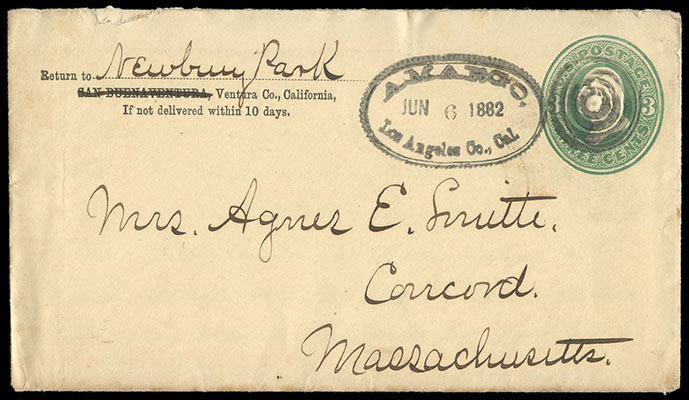 Return to Newbury Park
SAN BUENAVENTURA, Ventura Co., California,
If not delivered within 10 days.
AMARGO,
JUN 6 1882
Los Angeles Co., Cal.
POSTAGE
3
CENTS
Mrs. Agnes E. Smith.
Concord.
Massachusetts.